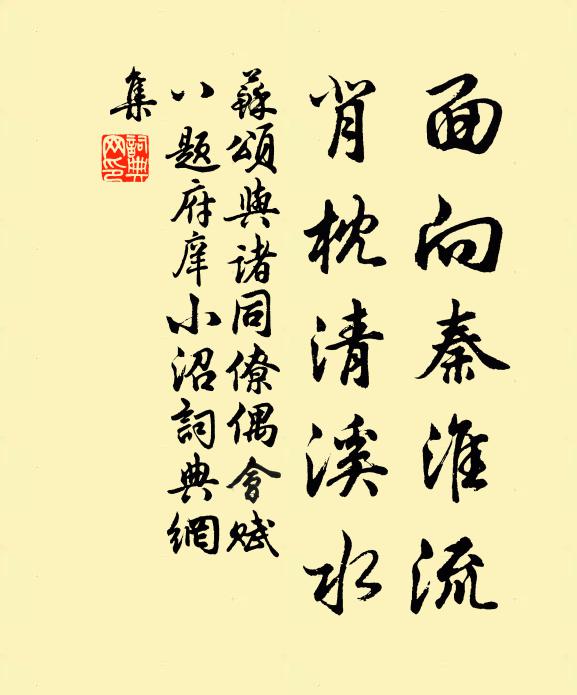 面向秦淮流
背枕清溪水
蘇頌與諸同僚偶會賦
八題府庠小沼詞典網
集
詞典網印